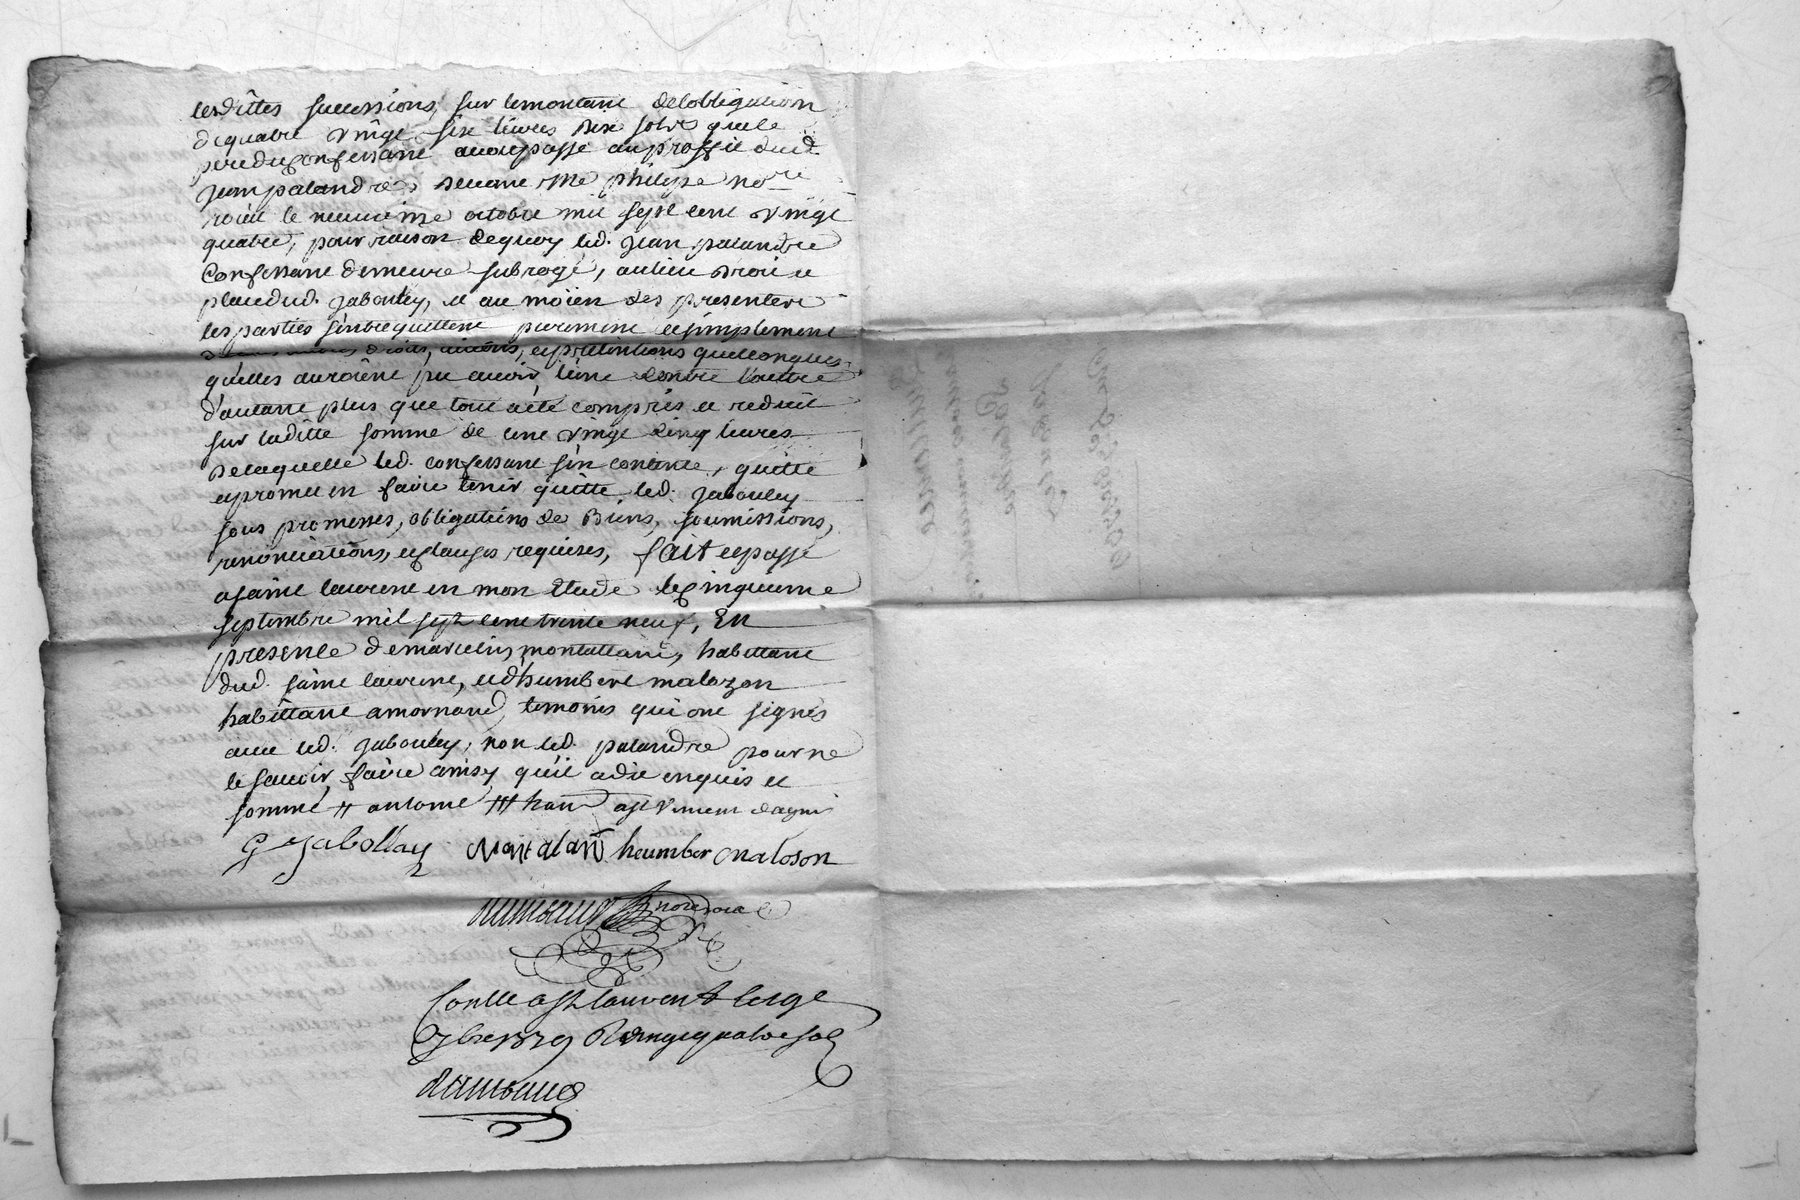 lesdittes successions, sur lemontant delobligation
dequatre vingt six livres dix sols que le
pere du confessant avoit passé au proffit dud.
Jean palandre, devant Me philipe nore
roial le neuvieme octobre mil sept cent vingt
quatre, pour raison dequoy led. Jean palandre
Confessant demeure subrogé, aulieu droit et
place dud. Jabouley, et au moïen des presentes
les parties s'entrequittent purement et simplement
droits, actions, et pretentions quelconques
qu'elles auroient pu avoir l'une contre l'autre
d'autant plus que tout a été compris et reduit
sur laditte somme de cent vingt cinq livres
de laquelle led. confessant s'en contente, quitte
et promet en faire tenir quitte led. Jabouley
sous promesses, obligations de Biens, soumissions,
renonciations, et clauses requises, fait et passé
a saint laurent en mon Etude le cinquieme
septembre mil sept cent trente neuf, En
presence de marcelin montallant, habittant
dud. saint laurent, et d'humbert malozon
habittant a mornand, temoins qui ont signés
avec led. Jabouley, non led. palandre pour ne
le savoir faire ainsy qu'il a dit enquis et
sommé
G Jabollay Montalant heumber maloson
Raimbaud nore roial
Conllé a St Laurent le
7bre 1739 R vingt quatre sols
Raimbaud